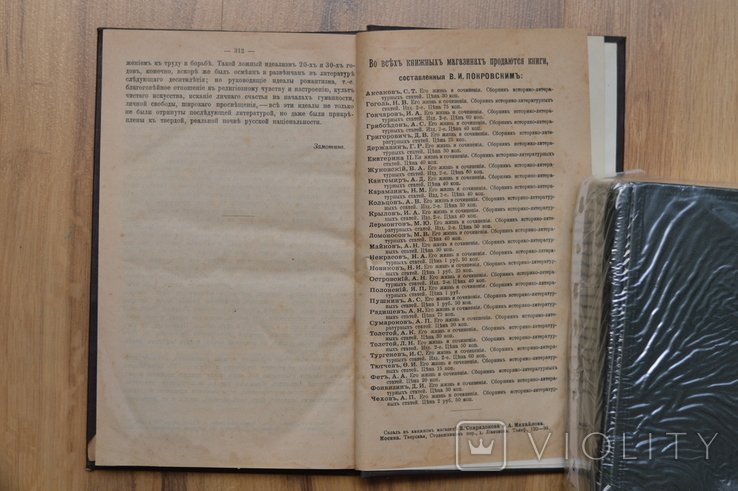 — 312 —
женіемъ къ труду и борьбѣ. Такой ложный идеализмъ 20-хъ и 30-хъ го-
довъ, конечно, вскорѣ же былъ осмѣянъ и развѣнчанъ въ литературѣ
слѣдующаго десятилѣтія; но руководящіе идеалы романтизма, т.-е.
благоговѣйное отношеніе къ религіозному чувству и настроенію, культъ
чистаго искусства, исканіе личнаго счастья на началахъ гуманности,
личной свободы, широкаго просвѣщенія, — всѣ эти идеалы не только
не были отринуты послѣдующей литературой, но даже были прикрѣ-
плены къ твердой, реальной почвѣ русской національности.
Замотинъ.
Во всѣхъ книжныхъ магазинахъ продаются книги,
составленныя В. И. ПОКРОВСКИМЪ:
Аксаковъ, С.Т. Его жизнь и сочиненія. Сборникъ историко-литера-
турныхъ статей. Цѣна 30 коп.
Гоголь, Н. В. Его жизнь и сочиненія. Сборникъ историко-литературныхъ
статей. Изд. 3-е. Цѣна 75 коп.
Гончаровъ, И. А. Его жизнь и сочиненія. Сборникъ историко-литера-
турныхъ статей. Изд. 2-е. Цѣна 60 коп.
Грибоѣдовъ, А. С. Его жизнь и сочиненія. Сборникъ историко-литера-
турныхъ статей. Изд. 2-е. Цѣна 40 коп.
Григоровичъ, Д. В. Его жизнь и сочиненія. Сборникъ историко-литера-
турныхъ статей. Цѣна 25 коп.
Державинъ, Г. Р. Его жизнь и сочиненія. Сборникъ историко-литера-
турныхъ статей. Цѣна 30 коп.
Екатерина II. Ея жизнь и сочиненія. Сборникъ историко-литературныхъ
статей. Цѣна 40 коп.
Жуковскій, В. А. Его жизнь и сочиненія. Сборникъ историко-литера-
турныхъ статей. Цѣна 50 коп.
Кантемиръ, А. Д. Его жизнь и сочиненія. Сборникъ историко-литера-
турныхъ статей. Цѣна 40 коп.
Карамзинъ, Н. М. Его жизнь и сочиненія. Сборникъ историко-литера-
турныхъ статей. Цѣна 40 коп.
Кольцовъ, А. В. Его жизнь и сочиненія. Сборникъ историко-литератур-
ныхъ статей. Изд. 2-е. Цѣна 40 коп.
Крыловъ, И. А. Его жизнь и сочиненія. Сборникъ историко-литератур-
ныхъ статей. Изд. 2-е. Цѣна 40 коп.
Лермонтовъ, М. Ю. Его жизнь и сочиненія. Сборникъ историко-лите-
ратурныхъ статей. Изд. 2-е. Цѣна 50 коп.
Ломоносовъ, М. В. Его жизнь и сочиненія. Сборникъ историко-литера-
турныхъ статей. Цѣна 40 коп.
Майковъ, А. Н. Его жизнь и сочиненія. Сборникъ историко-литератур-
ныхъ статей. Цѣна 30 коп.
Некрасовъ, Н. А. Его жизнь и сочиненія. Сборникъ историко-литера-
турныхъ статей. Цѣна 1 руб. 50 коп.
Новиковъ, Н. И. Его жизнь и сочиненія. Сборникъ историко-литера-
турныхъ статей. Цѣна 1 руб. 25 коп.
Островскій, А. Н. Его жизнь и сочиненія. Сборникъ историко-литера-
турныхъ статей. Изд. 2-е. Цѣна 40 коп.
Полонскій, Я. П. Его жизнь и сочиненія. Сборникъ историко-литера-
турныхъ статей. Цѣна 1 руб.
Пушкинъ, А. С. Его жизнь и сочиненія. Сборникъ историко-литератур-
ныхъ статей. Цѣна 1 руб. 50 коп.
Радищевъ, А. Н. Его жизнь и сочиненія. Сборникъ историко-литера-
турныхъ статей. Цѣна 75 коп.
Сумароковъ, А. П. Его жизнь и сочиненія. Сборникъ историко-литера-
турныхъ статей. Цѣна 30 коп.
Толстой, А. К. Его жизнь и сочиненія. Сборникъ историко-литератур-
ныхъ статей. Цѣна 30 коп.
Толстой, Л. Н. Его жизнь и сочиненія. Сборникъ историко-литератур-
ныхъ статей. Изд. 2-е. Цѣна 50 коп.
Тургеневъ, И. С. Его жизнь и сочиненія. Сборникъ историко-литера-
турныхъ статей. Изд. 2-е. Цѣна 60 коп.
Тютчевъ, Ѳ. И. Его жизнь и сочиненія. Сборникъ историко-литератур-
ныхъ статей. Цѣна 15 коп.
Фетъ, А. А. Его жизнь и сочиненія. Сборникъ историко-литературныхъ
статей. Цѣна 20 коп.
Фонвизинъ, Д. И. Его жизнь и сочиненія. Сборникъ историко-литера-
турныхъ статей. Цѣна 50 коп.
Чеховъ, А. П. Его жизнь и сочиненія. Сборникъ историко-литератур-
ныхъ статей. Цѣна 2 руб. 50 коп.
Складъ въ книжномъ магазинѣ В. Спиридонова и А. Михайлова.
Москва. Тверская, Столешниковъ пер.,
VIOLITY